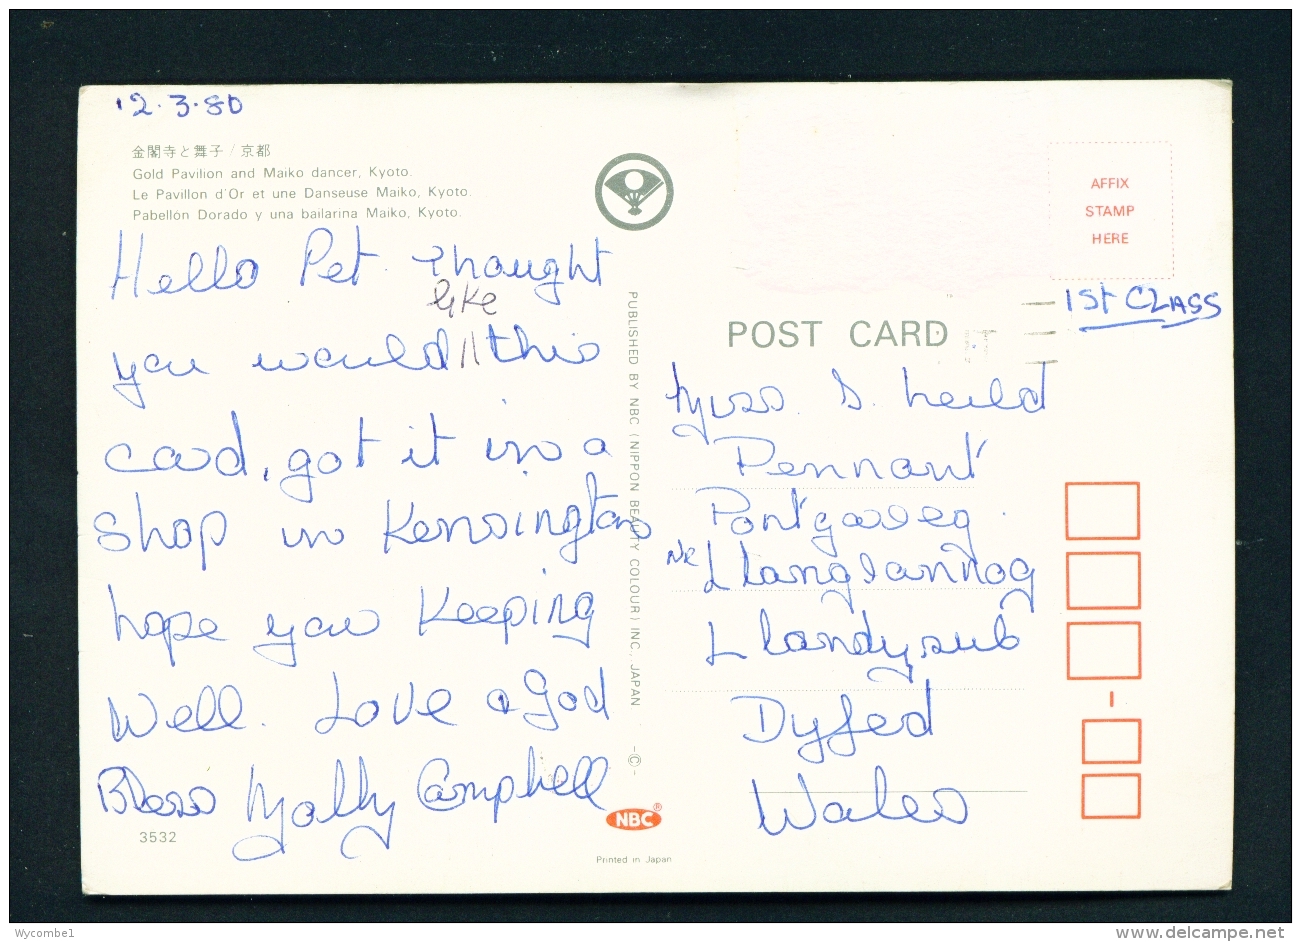 12.3.80
金閣寺と舞子 / 京都
Gold Pavilion and Maiko dancer, Kyoto.
Le Pavillon d'Or et une Danseuse Maiko, Kyoto.
Pabellón Dorado y una bailarina Maiko, Kyoto.
Hello Pet. Thought
like
you would // this
card, got it in a
shop in Kensington
hope you Keeping
Well. Love & God
Bless Molly Campbell
3532
PUBLISHED BY NBC (NIPPON BEAUTY COLOUR) INC., JAPAN -©-
NBC®
Printed in Japan
AFFIX
STAMP
HERE
1st CLASS
POST CARD
Miss. S. Leild
Pennant
Pontgarreg.
Nr Llangrannog
Llandysub
Dyfed
Wales
Wycombe1
www.delcampe.net